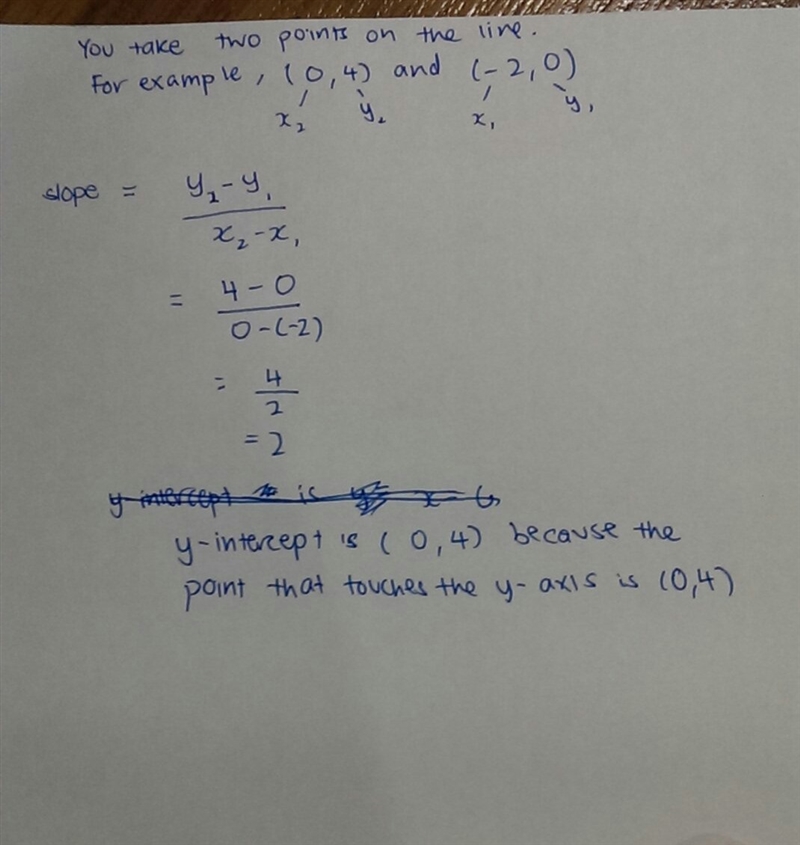 You take two points on the line.
For example, (0,4) and (-2,0)
x₂ y₂ x₁ y₁
slope = y₂-y₁
x₂-x₁
= 4-0
0-(-2)
= 4
2
=2
y-intercept is
y-intercept is (0,4) because the
point that touches the y-axis is (0,4)